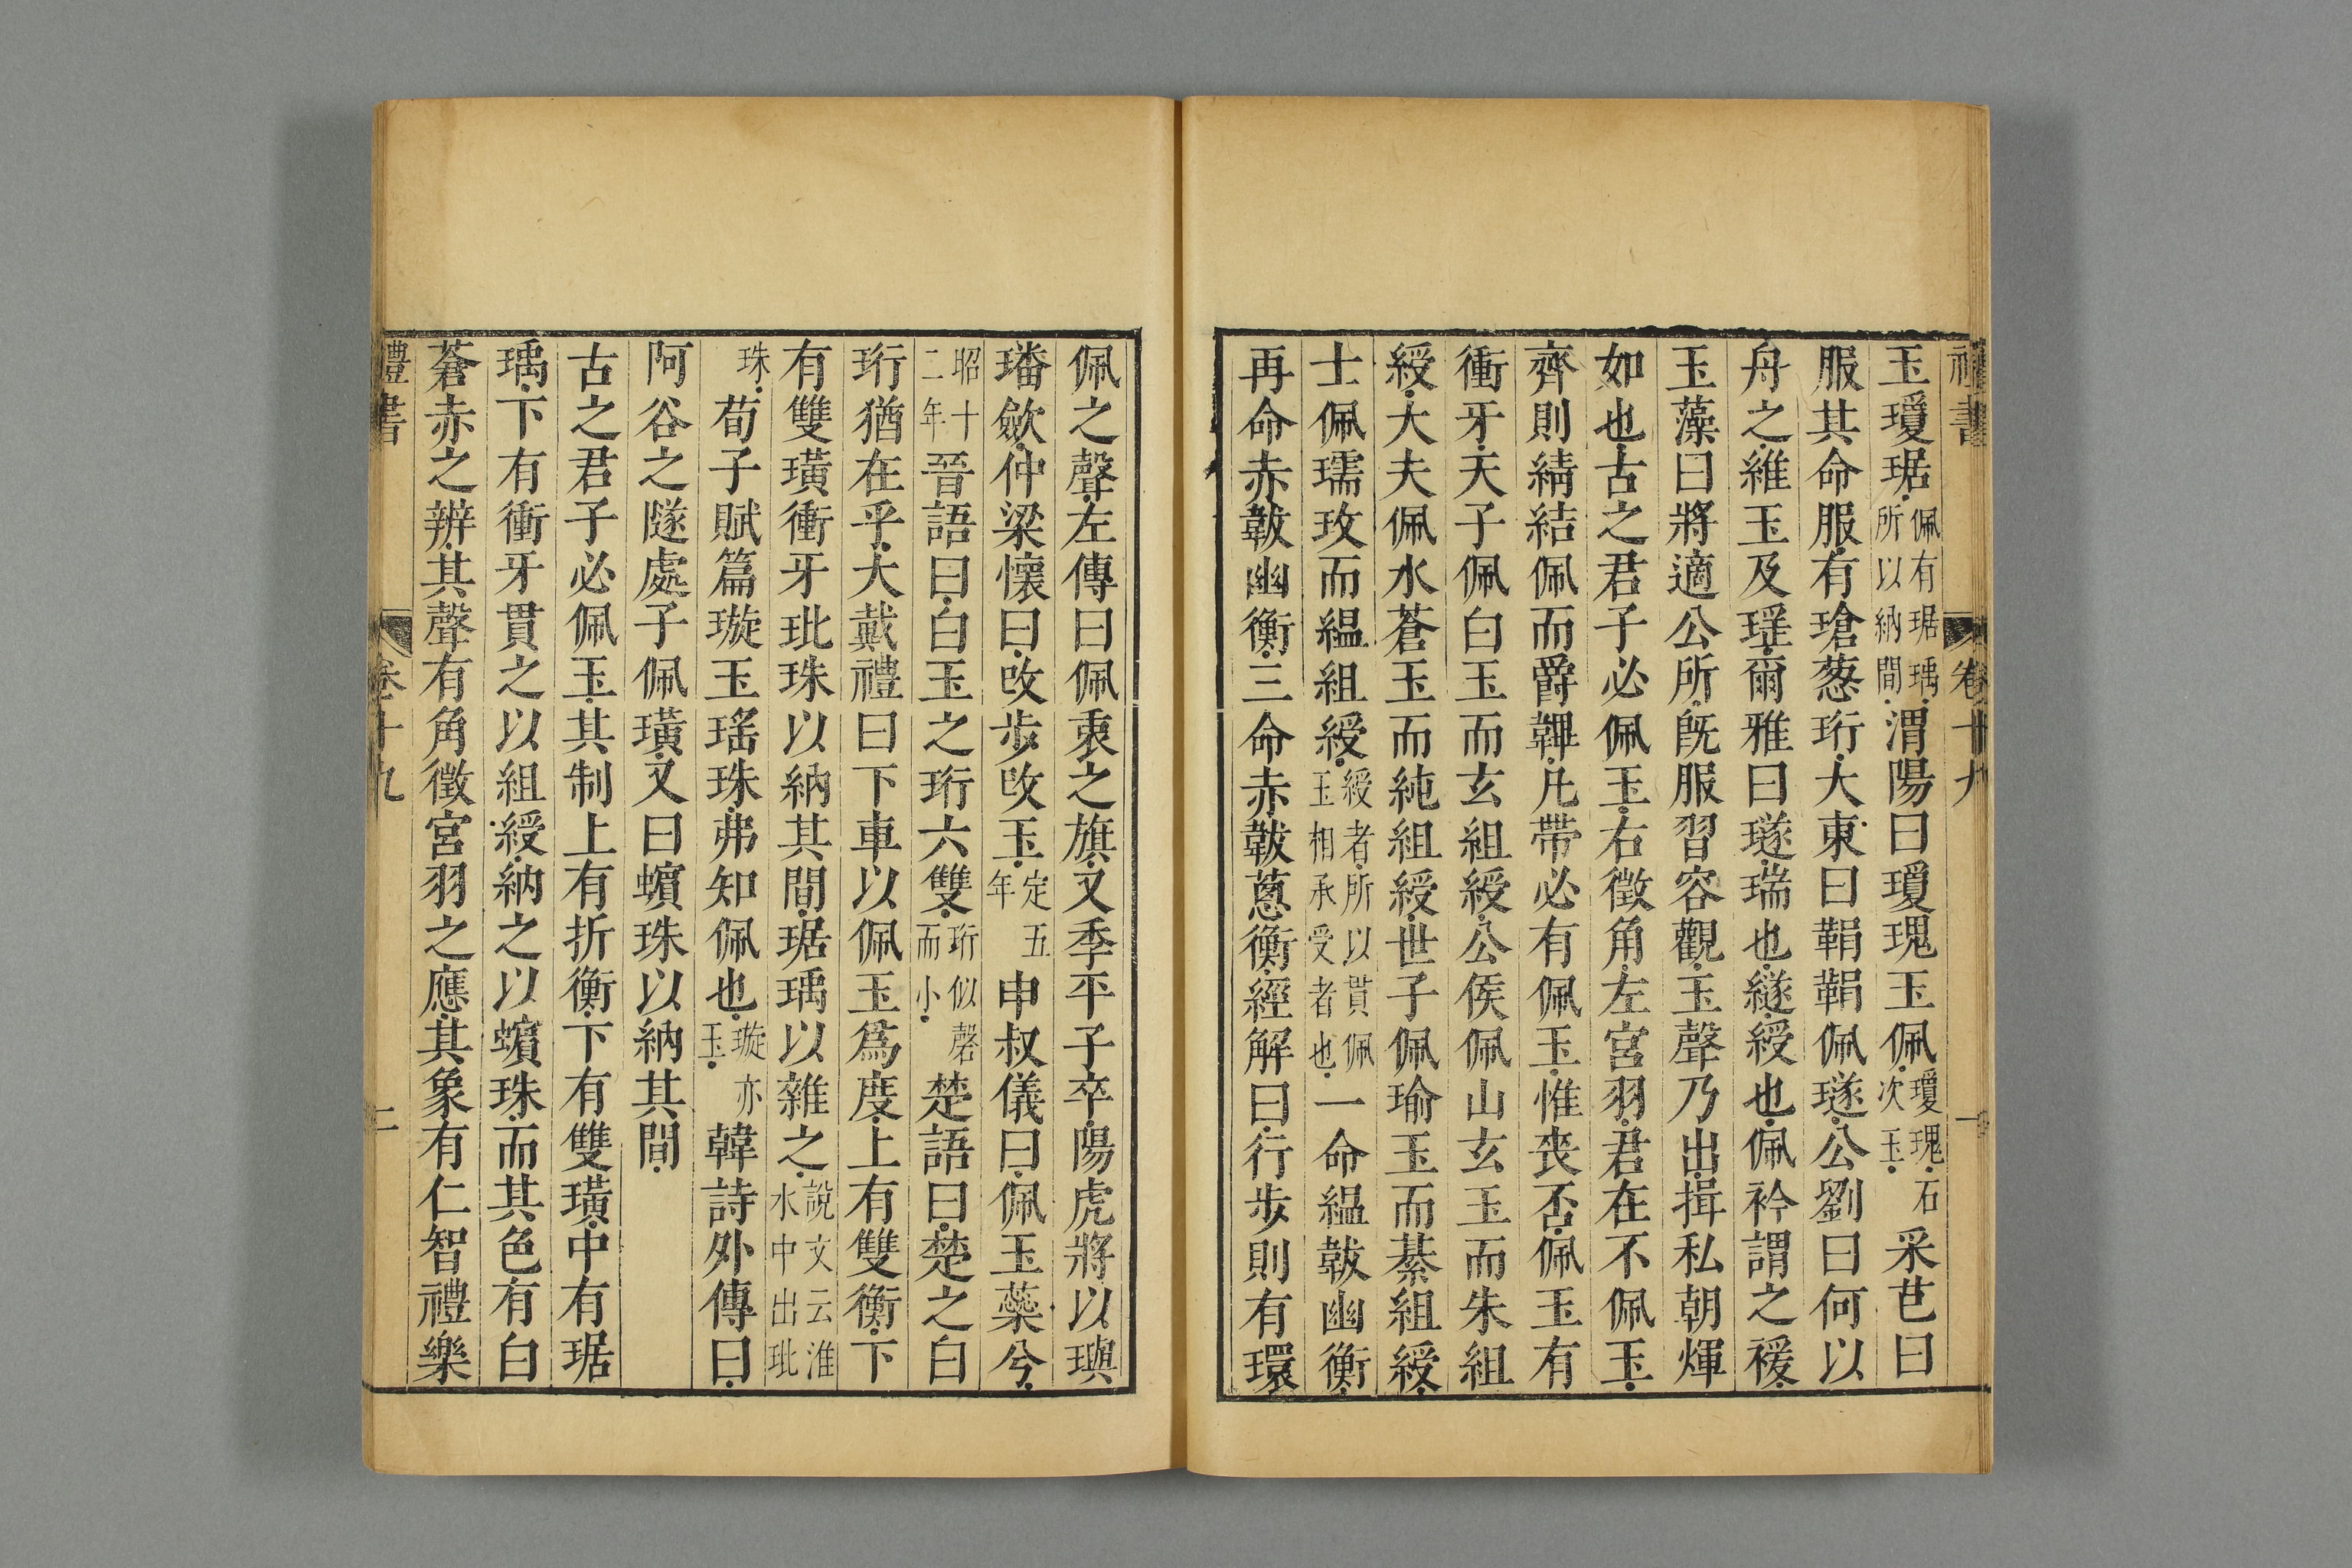 禮書 卷十九 一
玉瓊琚佩有琚瑀所以納間渭陽曰瓊瑰玉佩瓊瑰石次玉采芑曰
服其命服有瑲蔥珩大東曰鞙鞙佩璲公劉曰何以
舟之維玉及瑤爾雅曰璲瑞也繸綬也佩衿謂之褑
玉藻曰將適公所旣服習容觀玉聲乃出揖私朝煇
如也古之君子必佩玉右徵角左宮羽君在不佩玉
齊則綪結佩而爵韠凡帶必有佩玉惟喪否佩玉有
衝牙天子佩白玉而玄組綬公侯佩山玄玉而朱組
綬大夫佩水蒼玉而純組綬世子佩瑜玉而綦組綬
士佩瓀玫而縕組綬綬者所以貫佩玉相承受者也一命縕韍幽衡
再命赤韍幽衡三命赤韍蔥衡經解曰行步則有環
佩之聲左傳曰佩衷之旗又季平子卒陽虎將以璵
璠歛仲梁懷曰改步改玉定五年申叔儀曰佩玉蘂兮
昭十二年晉語曰白玉之珩六雙珩似磬而小楚語曰楚之白
珩猶在乎大戴禮曰下車以佩玉爲度上有雙衡下
有雙璜衝牙玭珠以納其間琚瑀以雜之說文云淮水中出玭
珠荀子賦篇璇玉瑤珠弗知佩也璇亦玉韓詩外傳曰
阿谷之隧處子佩璜又曰蠙珠以納其間
古之君子必佩玉其制上有折衡下有雙璜中有琚
瑀下有衝牙貫之以組綬納之以蠙珠而其色有白
蒼赤之辨其聲有角徵宮羽之應其象有仁智禮樂
禮書 卷十九 二